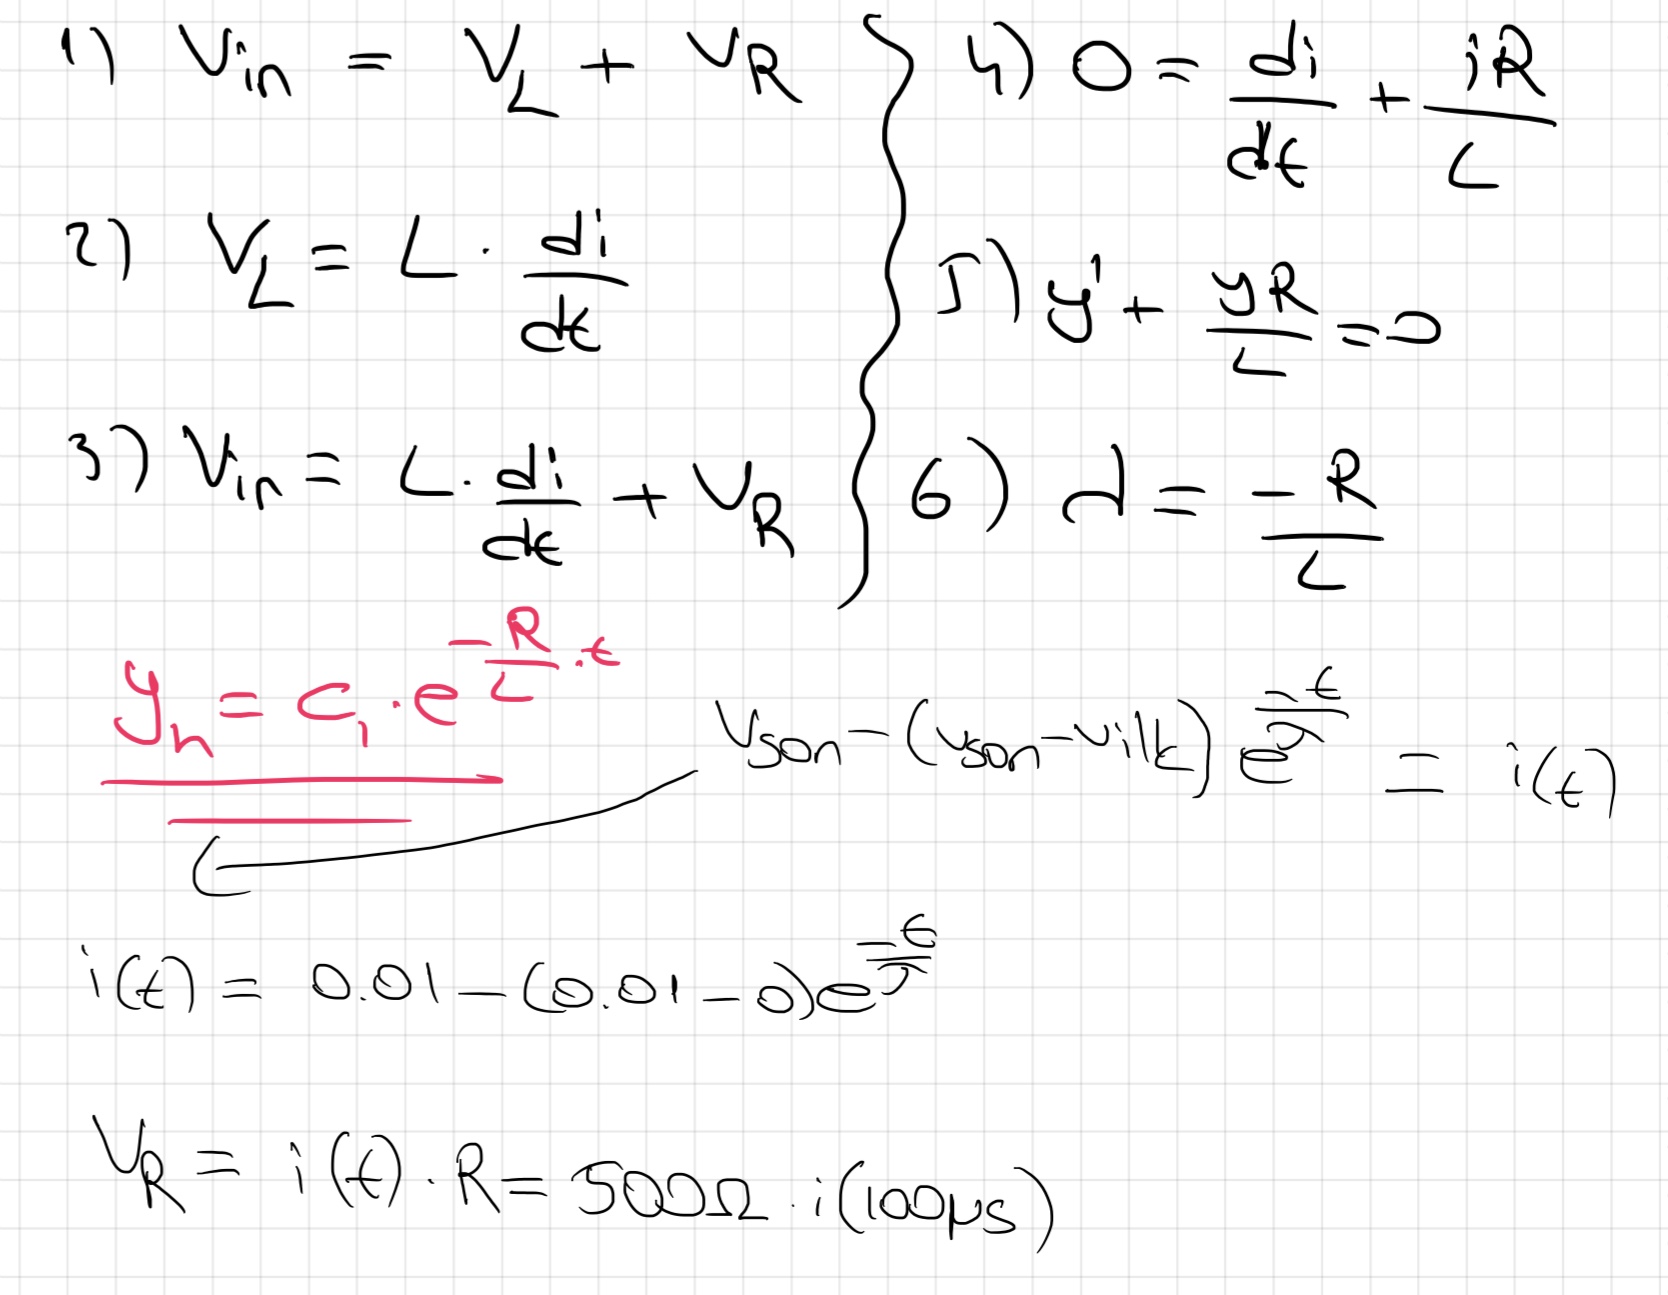 1) Vin = VL + VR
2) VL = L · di/dt
3) Vin = L · di/dt + VR
4) 0 = di/dt + iR/L
5) y' + yR/L = 0
6) λ = -R/L
yh = c1 · e^(-R/L · t)
Vson - (Vson - Vilk) e^(-t/τ) = i(t)
i(t) = 0.01 - (0.01 - 0)e^(-t/τ)
VR = i(t) · R = 500Ω · i(100μs)